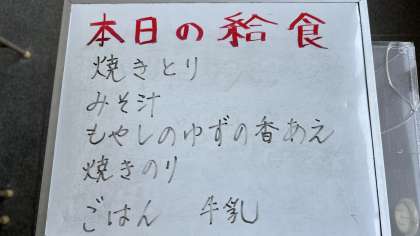 本日の給食
焼きとり
みそ汁
もやしのゆずの香あえ
焼きのり
ごはん 牛乳